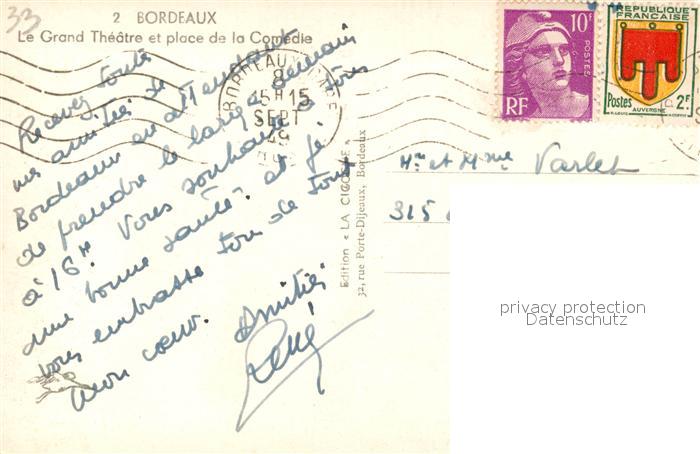 33
2 BORDEAUX
Le Grand Théâtre et place de la Comédie
BORDEAUX
8
15H15
SEPT
10F
POSTES
RF
REPUBLIQUE
FRANCAISE
Postes 2F
AUVERGNE
Recevez toutes
mes amitiés de
Bordeaux en attendant
de prendre le large demain
à 16H. Vous souhaite à tous
une bonne santé et je
vous embrasse tous de tout
mon cœur. Amitiés
René
Edition « LA CIGOGNE »
32, rue Porte-Dijeaux, Bordeaux
Mr et Mme Varlet
315
privacy protection
Datenschutz